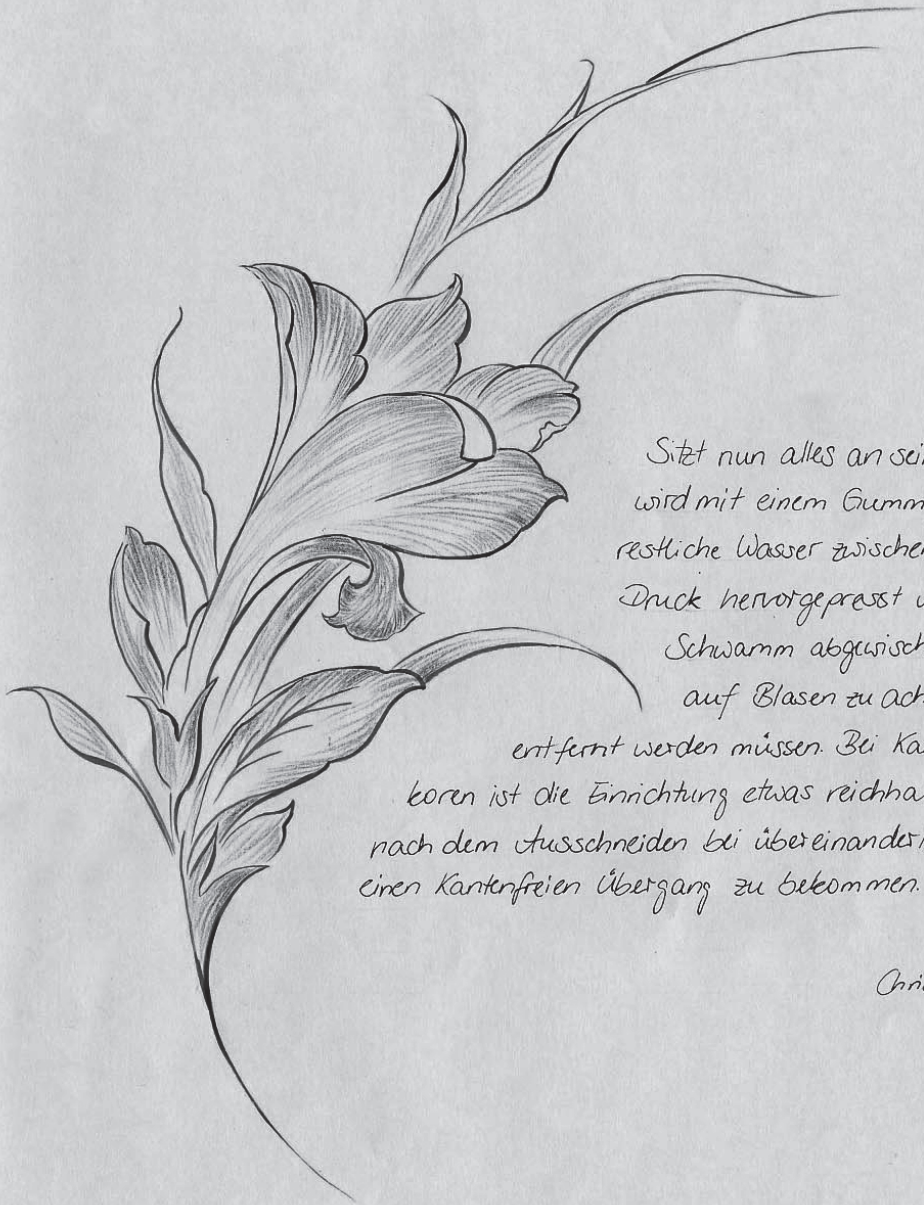 Sitzt nun alles an sei
wird mit einem Gumm
restliche Wasser zwische
Druck hervorgepresst u
Schwamm abgewisch
auf Blasen zu ach
entfernt werden müssen. Bei Ka
koren ist die Einrichtung etwas reichha
nach dem Ausschneiden bei übereinander
einen Kantenfreien Übergang zu bekommen.
Chri